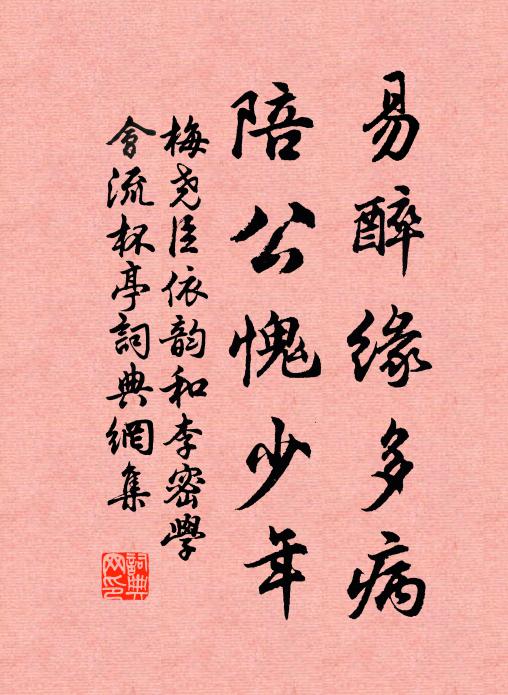 易醉緣多病
陪公愧少年
梅堯臣依韵和李密學
會流杯亭詞典網集
詞典網印